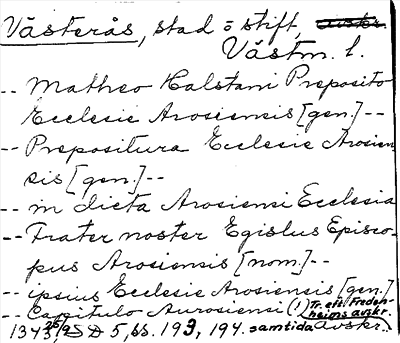 Västerås, stad o stift,
Västm. l.
-- Matheo Halstani Preposito
Ecclesie Arosiensis [gen.] --
-- Prepositura Ecclesie Arosien
sis [gen.] --
-- in dicta Arosiensi Ecclesia
-- Frater noster Egislus Episco-
pus Arosiensis [nom.] --
-- ipsius Ecclesie Arosiensis [gen.]
-- Capitulo Aurosiensi (!) Tr. eft. Freden-
heims avskr.
1343 SD 5, ss. 193, 194. samtida avskr.